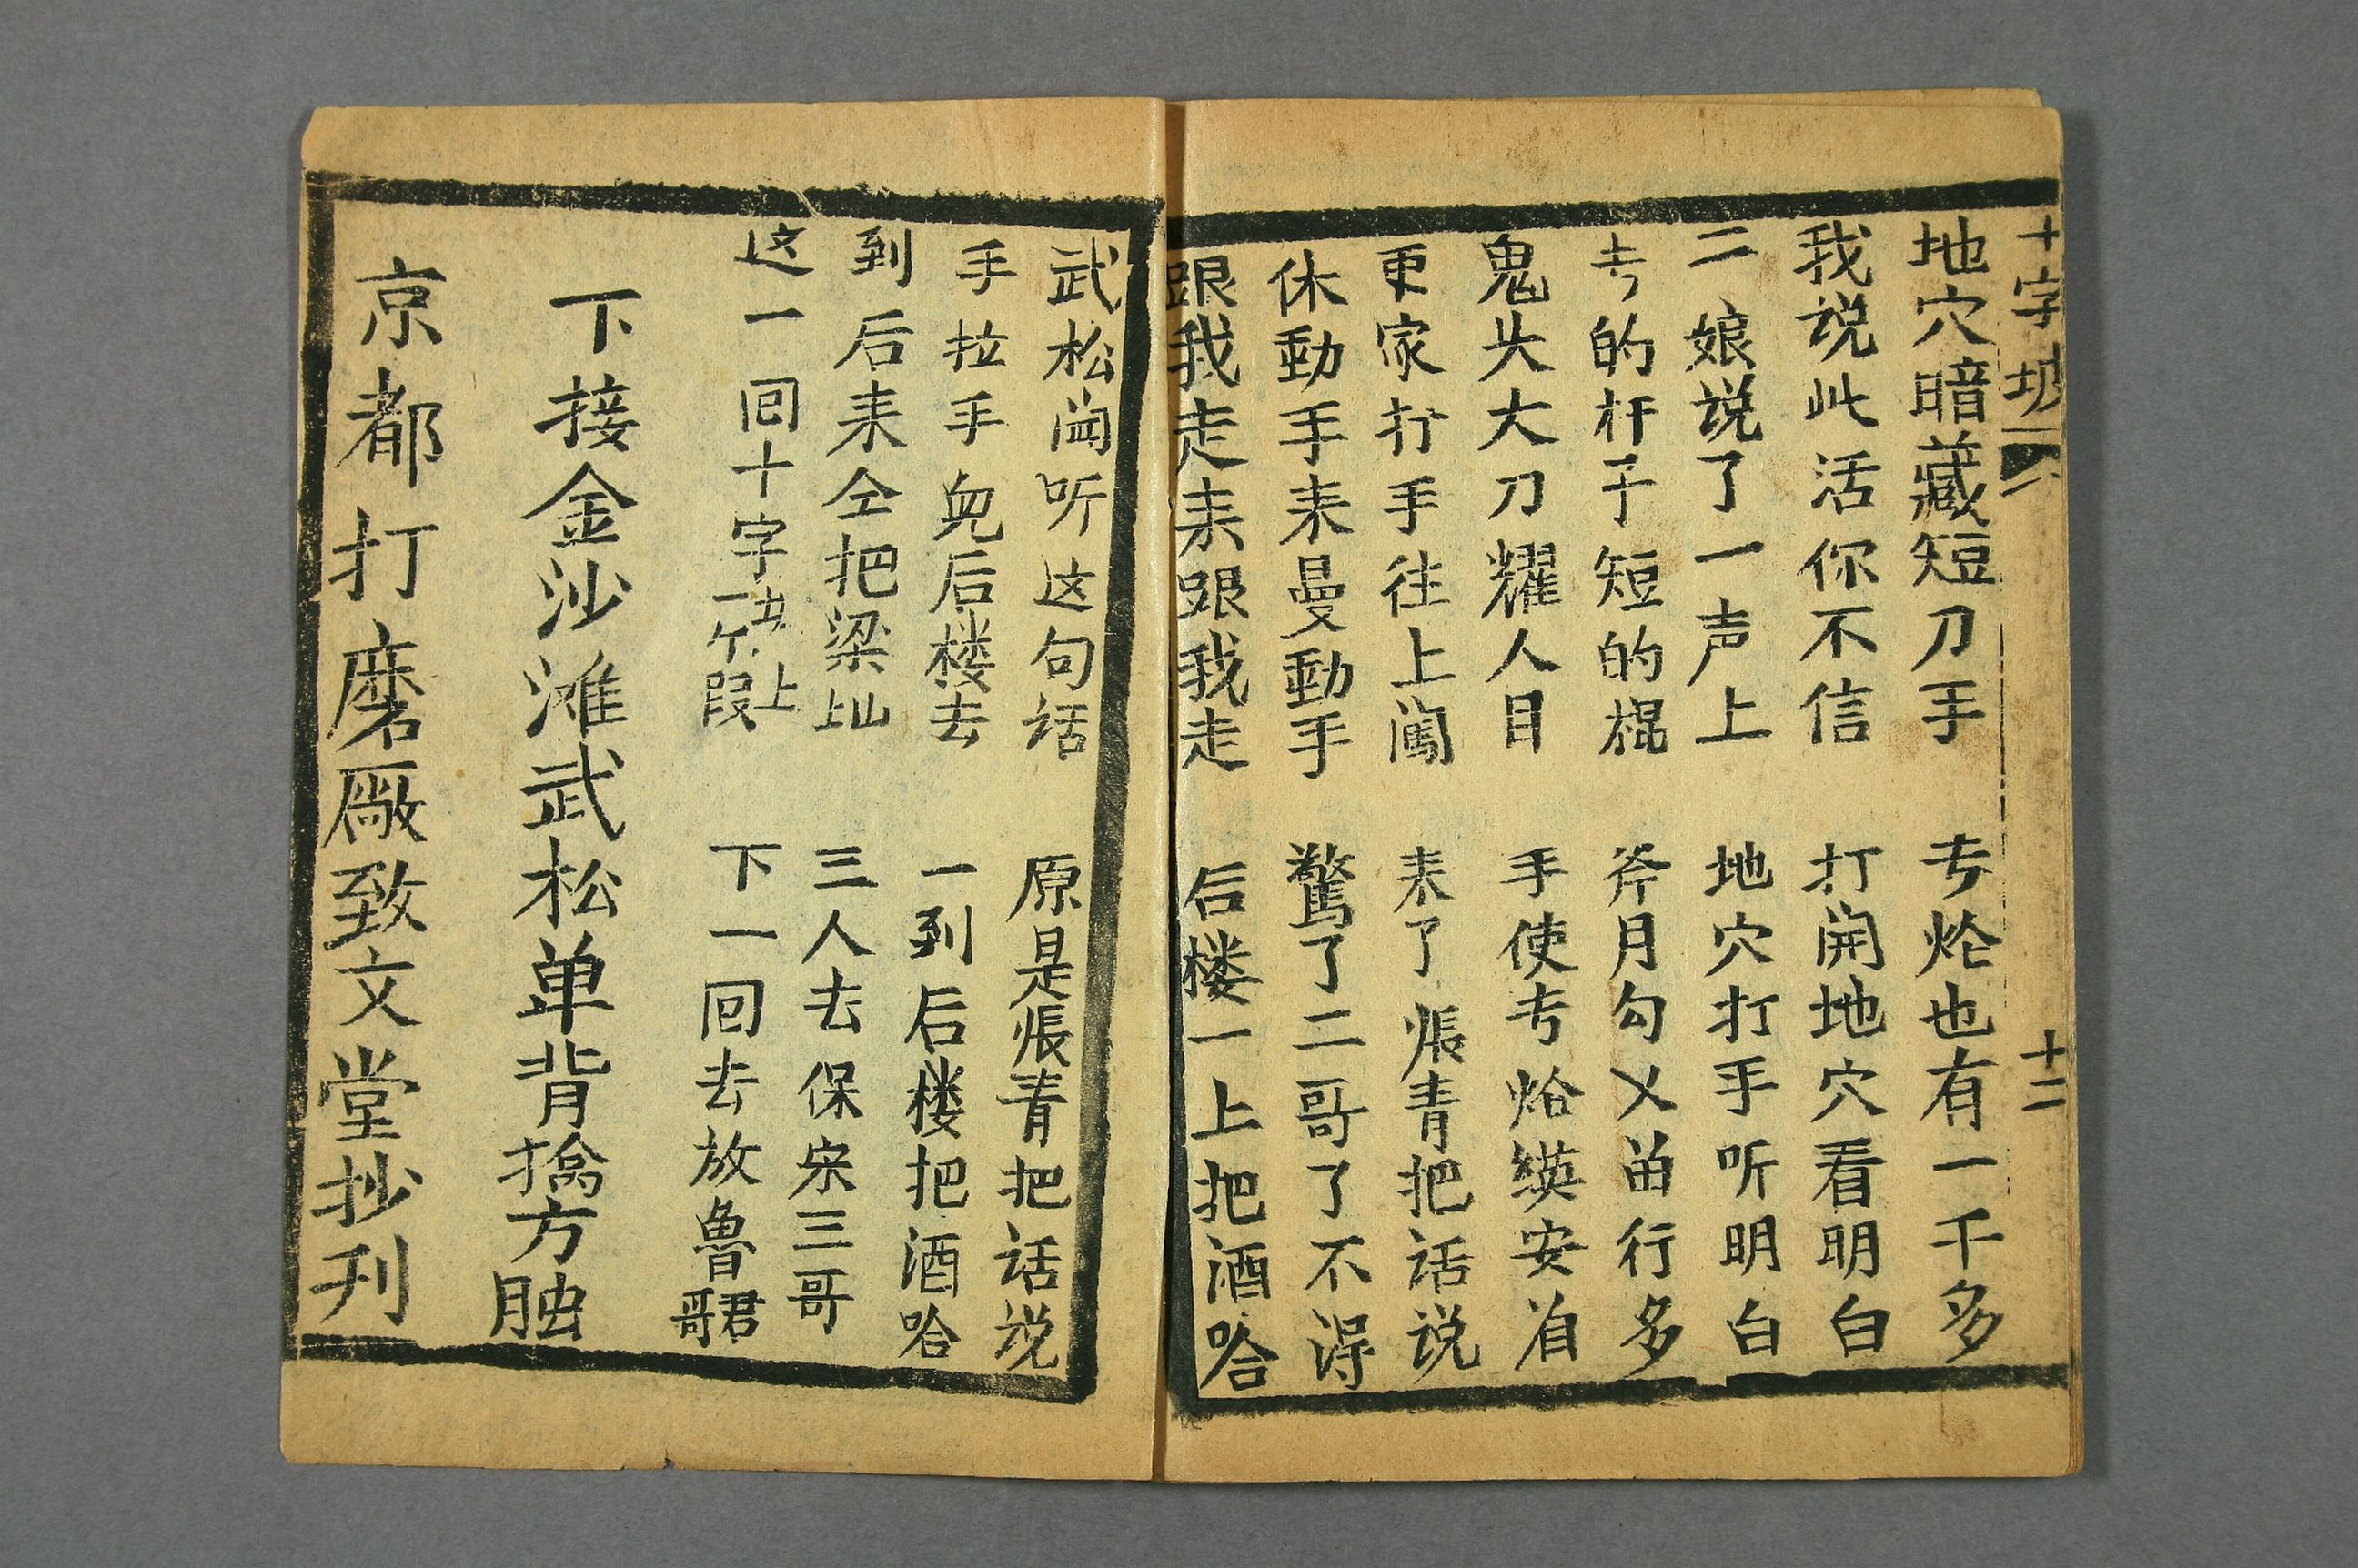 十字坡 十二
地穴暗藏短刀手 考炝也有一千多
我说此活你不信 打開地穴看明白
二娘说了一声上 地穴打手听明白
考的杆子短的棍 斧月勾乂苗行多
鬼头大刀耀人目 手使考炝缨安眉
更家打手往上闖 来了張青把话说
休動手来曼動手 驚了二哥了不得
跟我走来跟我走 后楼一上把酒哈
武松闻听这句话 原是張青把话说
手拉手兒后楼去 一到后楼把酒哈
到后来仝把梁山上 三人去保宋三哥
这一回十字坡上一个段 下一回去放魯君哥
下接金沙滩武松单背擒方腊
京都打磨厰致文堂抄刊